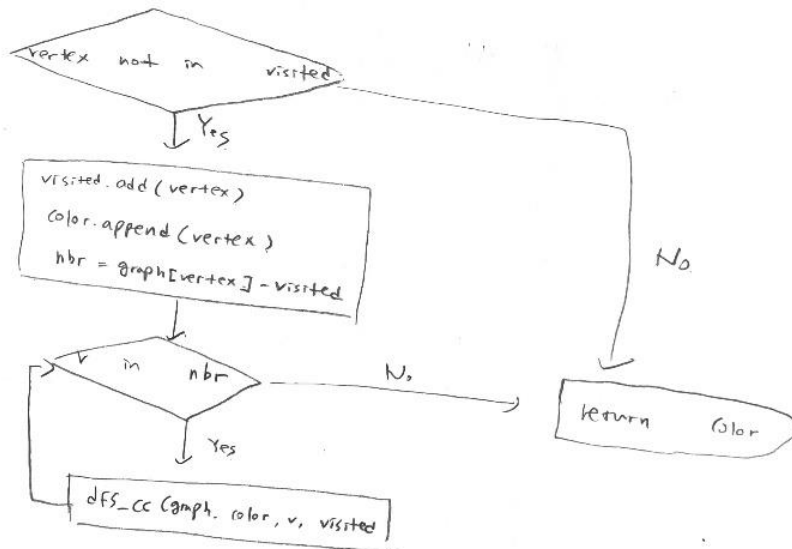 vertex not in visited
Yes
visited.add(vertex)
color.append(vertex)
nbr = graph[vertex] - visited
No
v in nbr
No
return color
Yes
dfs_cc (graph. color, v, visited